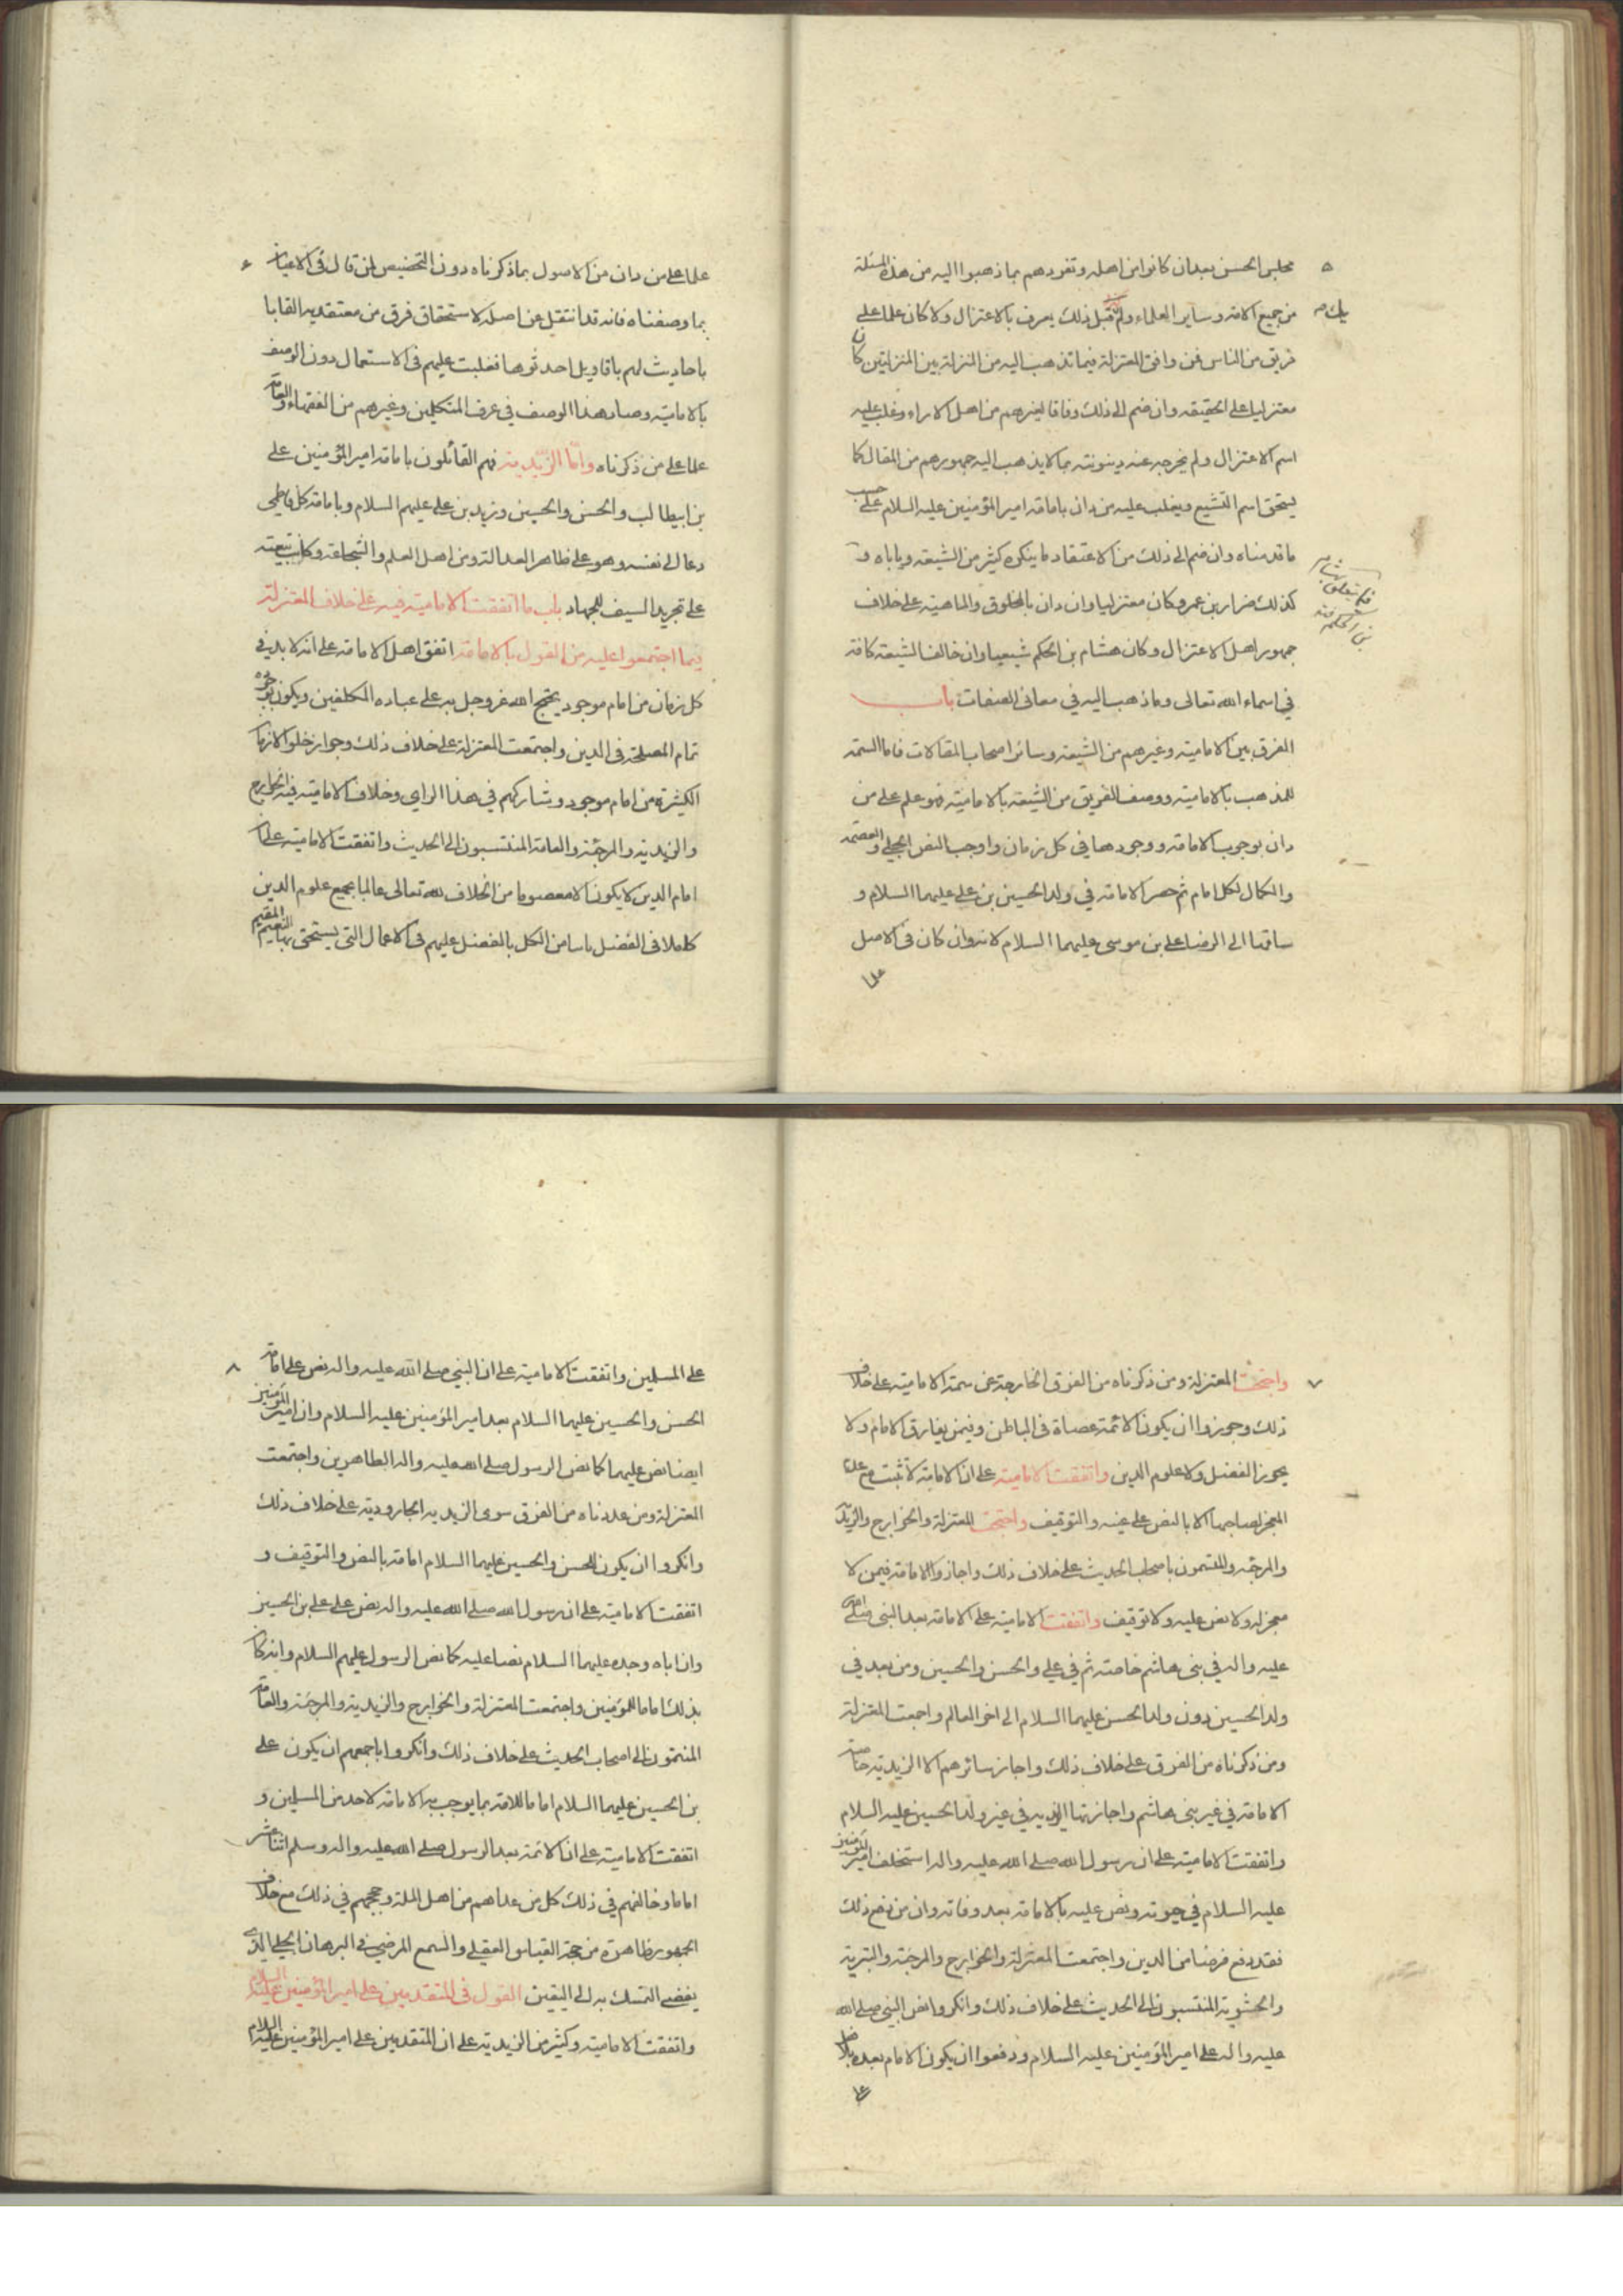 ٥
مجلس الحسن بعدان كانوا من اهله وتفردهم بما ذهبوا اليه من هذه المسئلة
من جميع الامة وساير العلماء ولم يك قبل ذلك يعرف بالاعتزال ولا كان علما على
فريق من الناس فمن وافق المعتزلة فيما تذهب اليه من المنزلة بين المنزلتين كان
معتزليا على الحقيقه وان ضم الى ذلك وفاقا لغيرهم من اهل الاراء وغلب عليه
اسم الاعتزال ولم يخرجه عنه دينونته بما لا يذهب اليه جمهورهم من المقال كما
يستحق اسم التشيع ويغلب عليه من دان بامامة امير المؤمنين عليه السلام على حسب
ما قدمناه وان ضم الى ذلك من الاعتقاد ما ينكره كثير من الشيعه وياباه و
كذلك ضرار بن عمرو كان معتزليا وان دان بالمخلوق والماهية على خلاف
جمهور اهل الاعتزال وكان هشام بن الحكم شيعيا وان خالف الشيعة كافة
في اسماء الله تعالى وما ذهب اليه في معانى الصفات باب
الفرق بين الامامية وغيرهم من الشيعة وسائر اصحاب المقالات فاما السمة
للمذهب بالامامية ووصف الفريق من الشيعة بالامامية فهو علم على من
دان بوجوب الامامة ووجودها في كل زمان واوجب النص الجلي والعصمة
والكمال لكل امام ثم حصر الامامة في ولد الحسين بن علي عليهما السلام و
ساقها الى الرضا علي بن موسى عليهما السلام لانه وان كان في الاصل
علما
٦
علما على من دان من الاصول بما ذكرناه دون التخصيص لمن قال في الاعيان
بما وصفناه فانه قد انتقل عن اصله لاستحقاق فرق من معتقديه القابا
باحاديث لهم باقاويل احدثوها فغلبت عليهم في الاستعمال دون الوصف
بالامامية وصار هذا الوصف في عرف المتكلمين وغيرهم من الفقهاء والعامة
علما على من ذكرناه واما الزيدية فهم القائلون بامامة امير المؤمنين علي
بن ابيطالب والحسن والحسين وزيد بن علي عليهم السلام وبامامة كل فاطمي
دعا الى نفسه وهو على ظاهر العدالة ومن اهل العلم والشجاعة وكانت بيعته
على تجريد السيف للجهاد باب ما اتفقت الامامية فيه على خلاف المعتزلة
فيما اجتمعوا عليه من القول بالامامة اتفق اهل الامامة على انه لا بد في
كل زمان من امام موجود يحتج الله عز وجل به على عباده المكلفين ويكون بوجوده
تمام المصلحة في الدين واجتمعت المعتزلة على خلاف ذلك وجواز خلو الازمان
الكثيرة من امام موجود وشاركهم في هذا الراي وخلاف الامامية فيه الخوارج
والزيدية والمرجئة والعامة المنتسبون الى الحديث واتفقت الامامية على ان
امام الدين لا يكون الا معصوما من الخلاف لله تعالى عالما بجميع علوم الدين
كاملا في الفضل باينا من الكل بالفضل عليهم في الاعمال التي يستحق بها النعيم المقيم
٧
واجتمعت المعتزلة ومن ذكرناه من الفرق الخارجة عن سمة الامامية على خلاف
ذلك وجوزوا ان يكون الائمة عصاة في الباطن وفيمن يفارق الامام ولا
يحوز الفضل ولا علوم الدين واتفقت الامامية على ان الامامة لا تثبت مع عدم
المعجز لصاحبها الا بالنص على عينه والتوقيف واجتمعت المعتزلة والخوارج والزيدية
والمرجئه والمتسمون باصحاب الحديث على خلاف ذلك واجازوا الامامة فيمن لا
معجز له ولا نص عليه ولا توقيف واتفقت الامامية على الامامة بعد النبي صلى الله
عليه واله في بني هاشم خاصة ثم في علي والحسن والحسين ومن بعد في
ولد الحسين دون ولد الحسن عليهما السلام الى اخر العالم واجمعت المعتزلة
ومن ذكرناه من الفرق على خلاف ذلك واجاز سائرهم الا الزيدية خاصة
الامامة في غير بني هاشم واجازتها الزيدية في غير ولد الحسين عليه السلام
واتفقت الامامية على ان رسول الله صلى الله عليه واله استخلف امير المؤمنين
عليه السلام في حيوته ونص عليه بالامامة بعد وفاته وان من دفع ذلك
فقد دفع فرضا من الدين واجتمعت المعتزلة والخوارج والمرجئة والبترية
والحشوية المنتسبون الى الحديث على خلاف ذلك وانكروا نص النبي صلى الله
عليه واله على امير المؤمنين عليه السلام ودفعوا ان يكون الامام بعده بلا فصل
على
٨
على المسلمين واتفقت الامامية على ان النبي صلى الله عليه واله نص على امامة
الحسن والحسين عليهما السلام بعد امير المؤمنين عليه السلام وان امير المؤمنين
ايضا نص عليهما كما نص الرسول صلى الله عليه واله الطاهرين واجتمعت
المعتزلة ومن عددناه من الفرق سوى الزيدية الجارودية على خلاف ذلك
وانكروا ان يكون للحسن والحسين عليهما السلام امامة بالنص والتوقيف و
اتفقت الامامية على ان رسول الله صلى الله عليه واله نص على علي بن الحسين
وان اباه وجده عليهما السلام نصا عليه كما نص الرسول عليهم السلام وانه كان
بذلك اماما للمؤمنين واجتمعت المعتزلة والخوارج والزيدية والمرجئة والعامة
المنتمون الى اصحاب الحديث على خلاف ذلك وانكروا باجمعهم ان يكون علي
بن الحسين عليهما السلام اماما للامة بما يوجب به الامامة لاحد من المسلمين و
اتفقت الامامية على ان الائمة بعد الرسول صلى الله عليه واله وسلم اثنا عشر
اماما وخالفهم في ذلك كل من عداهم من اهل الملة وحججهم في ذلك مع خلاف
الجمهور ظاهرة من جهة القياس العقلي والسمع المرضي والبرهان الجلي الذي
يفضى التمسك به الى اليقين القول في المتقدمين على امير المؤمنين عليه السلام
واتفقت الامامية وكثير من الزيدية على ان المتقدمين على امير المؤمنين عليه السلام